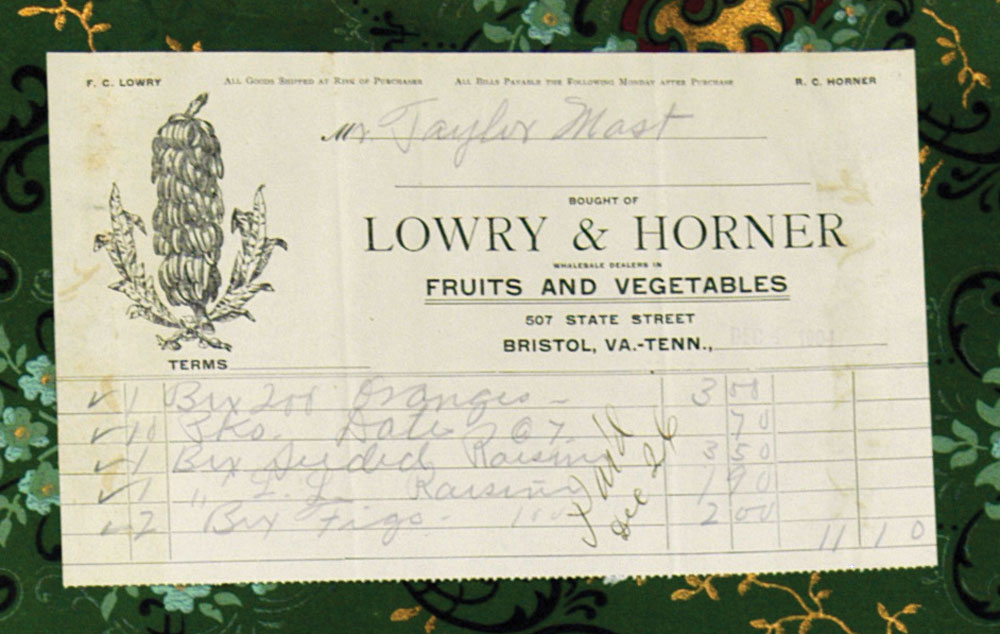 F. C. LOWRY ALL GOODS SHIPPED AT RISK OF PURCHASER ALL BILLS PAYABLE THE FOLLOWING MONDAY AFTER PURCHASE R. C. HORNER
Mr. Taylor Mast
BOUGHT OF
LOWRY & HORNER
WHALESALE DEALERS IN
FRUITS AND VEGETABLES
507 STATE STREET
BRISTOL, VA.-TENN.,
TERMS
✓ 1 Bx 200 Oranges - 3 00
✓ 10 Pks. Date 07 70
✓ 1 Bx Seeded Raisins 3 50
✓ 1 " L. L. Raisins 1 90
✓ 2 Bx Figs - 100 2 00
11 10
Paid
Dec 26